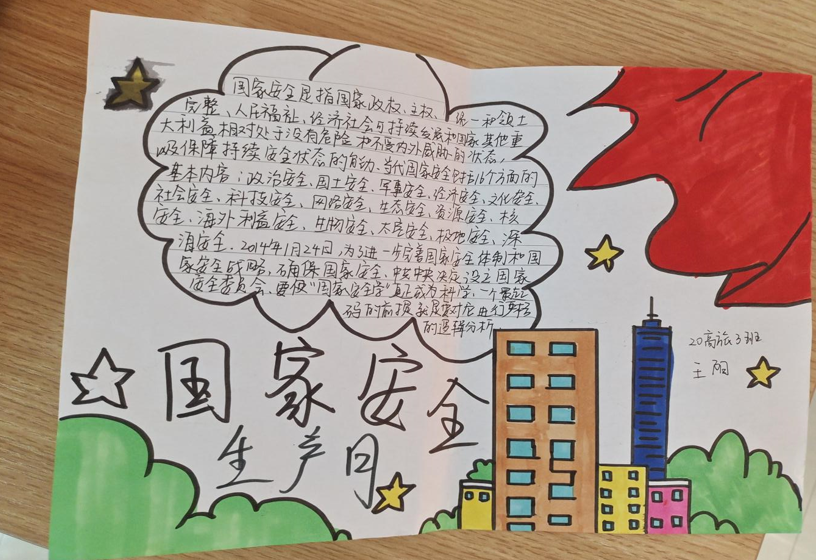 国家安全是指国家政权、主权、统一和领土
完整、人民福祉、经济社会可持续发展和国家其他重
大利益相对处于没有危险和不受内外威胁的状态,
以及保障持续安全状态的能力、当代国家安全包括16个方面的
基本内容:政治安全、国土安全、军事安全、经济安全、文化安全、
社会安全、科技安全、网络安全、生态安全、资源安全、核
安全、海外利益安全、生物安全、太空安全、极地安全、深
海安全.2014年1月24日,为了进一步完善国家安全体制和国
家安全战略,确保国家安全,中共中央决定设立国家
安全委员会.要使"国家安全学"真正成为科学,一个最
的前提
的逻辑分析.
国家安全
生产月
20高旅3班
王